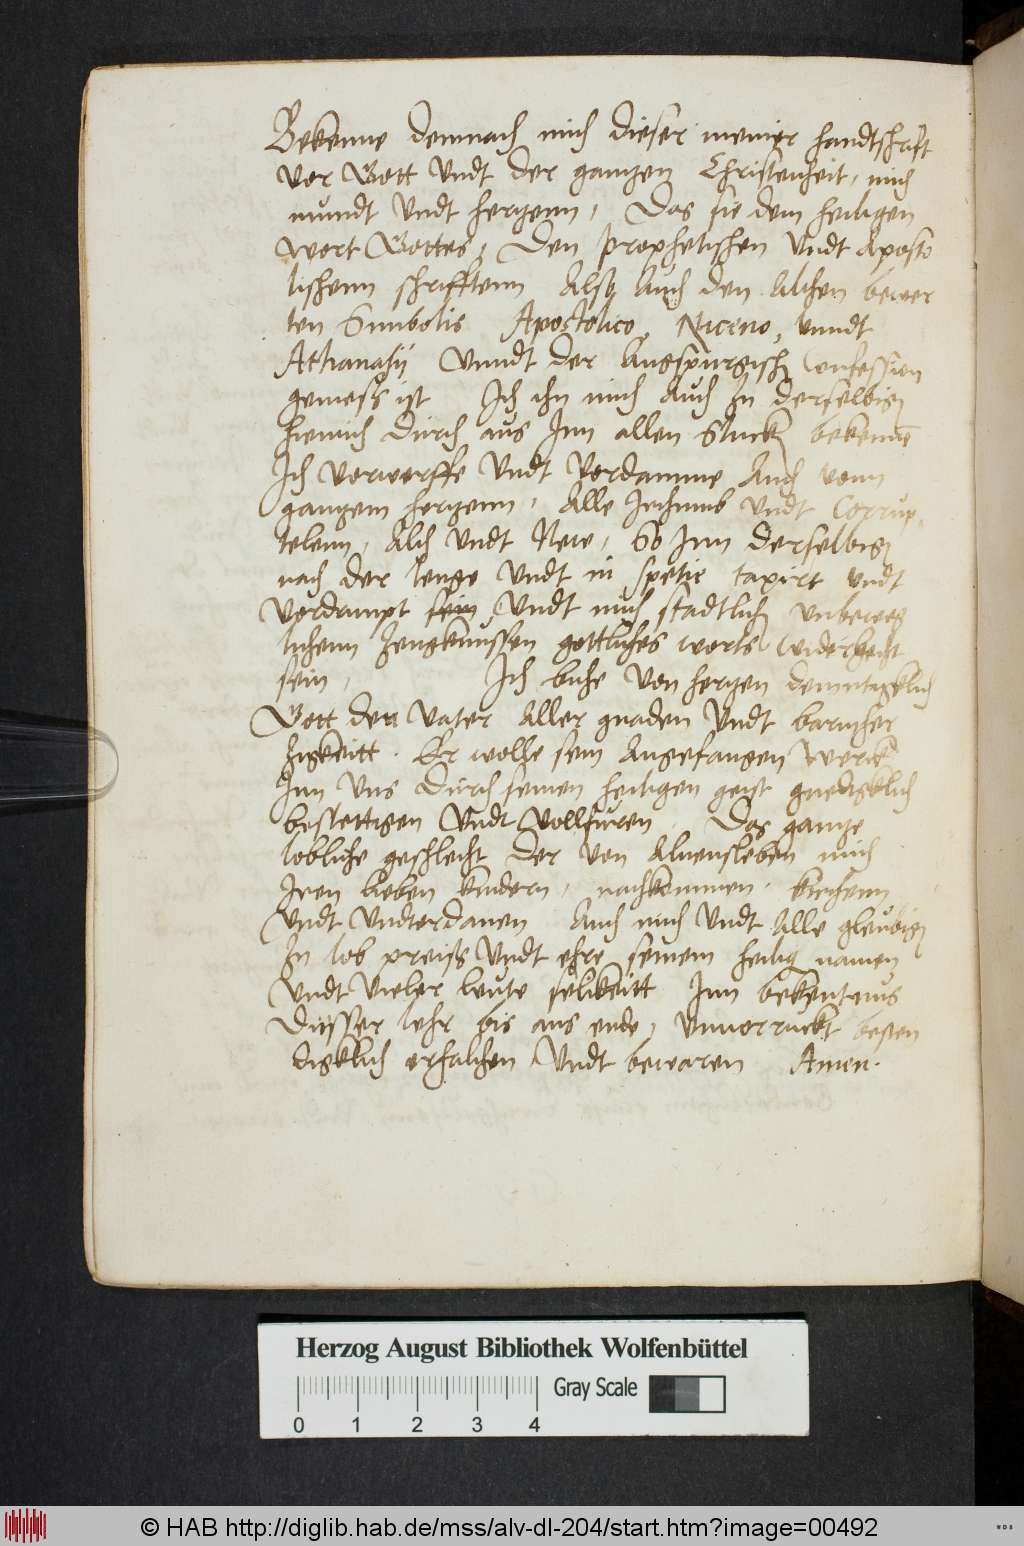 Bekenne demnach mitt dieser meiner handtschrift
vor Gott vndt der gantzen Christenheit, mitt
mundt vndt hertzenn, Das sie dem heiligen
wort Gottes, Den prophetischen vndt Aposto
lischenn schrifftenn Also Auch den Alten bewer
ten Simbolis Apostolico, Niceno, vnndt
Athanasij Vnndt der Augspurgisch Confession
gemess ist Ich mich Auch zu derselbig
hiemitt durch aus Inn allen Stuck bekenne
Ich vorwerffe vndt vordamme Auch vonn
gantzem hertzenn, Alle Irthumb vndt Corrup
telenn, Alt vndt New, So Inn derselbig
nach der lenge vndt in spetie taxirt vndt
vordampt sein, vndt mitt stadtlich vnbeweg
lichenn Zeugknussen gottliches worts widerlegt
sein, Ich bitte von hertzen demutigklich
Gott den vater Aller gnaden vndt barmher
zigkeitt. Er wolle sein Angefangen Werck
Inn vns durch seinen heiligen geist gnedigklich
bestettigen vndt vollfuren. Das gantze
lobliche geschlecht der von Aluensleben mitt
Iren lieben kindern, nachkommen, kirchenn
vndt vndterdanen Auch mich vndt Alle gleubig
In lob preiss vndt ehre seinem heilig namen
vndt vieler leute selikeitt Inn bekentnus
dieser lehr bis ans ende, vnuorruckt besten
digklich erhalten vndt bewaren Amen.
Herzog August Bibliothek Wolfenbüttel
Gray Scale
0 1 2 3 4
© HAB http://diglib.hab.de/mss/alv-dl-204/start.htm?image=00492